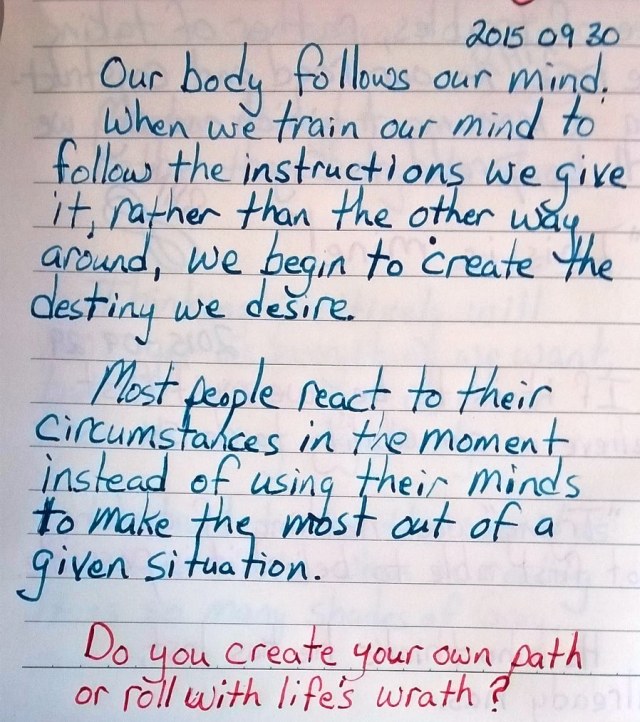 2015 09 30
Our body follows our mind.
When we train our mind to
follow the instructions we give
it, rather than the other way
around, we begin to create the
destiny we desire.
Most people react to their
circumstances in the moment
instead of using their minds
to make the most out of a
given situation.
Do you create your own path
or roll with life's wrath?